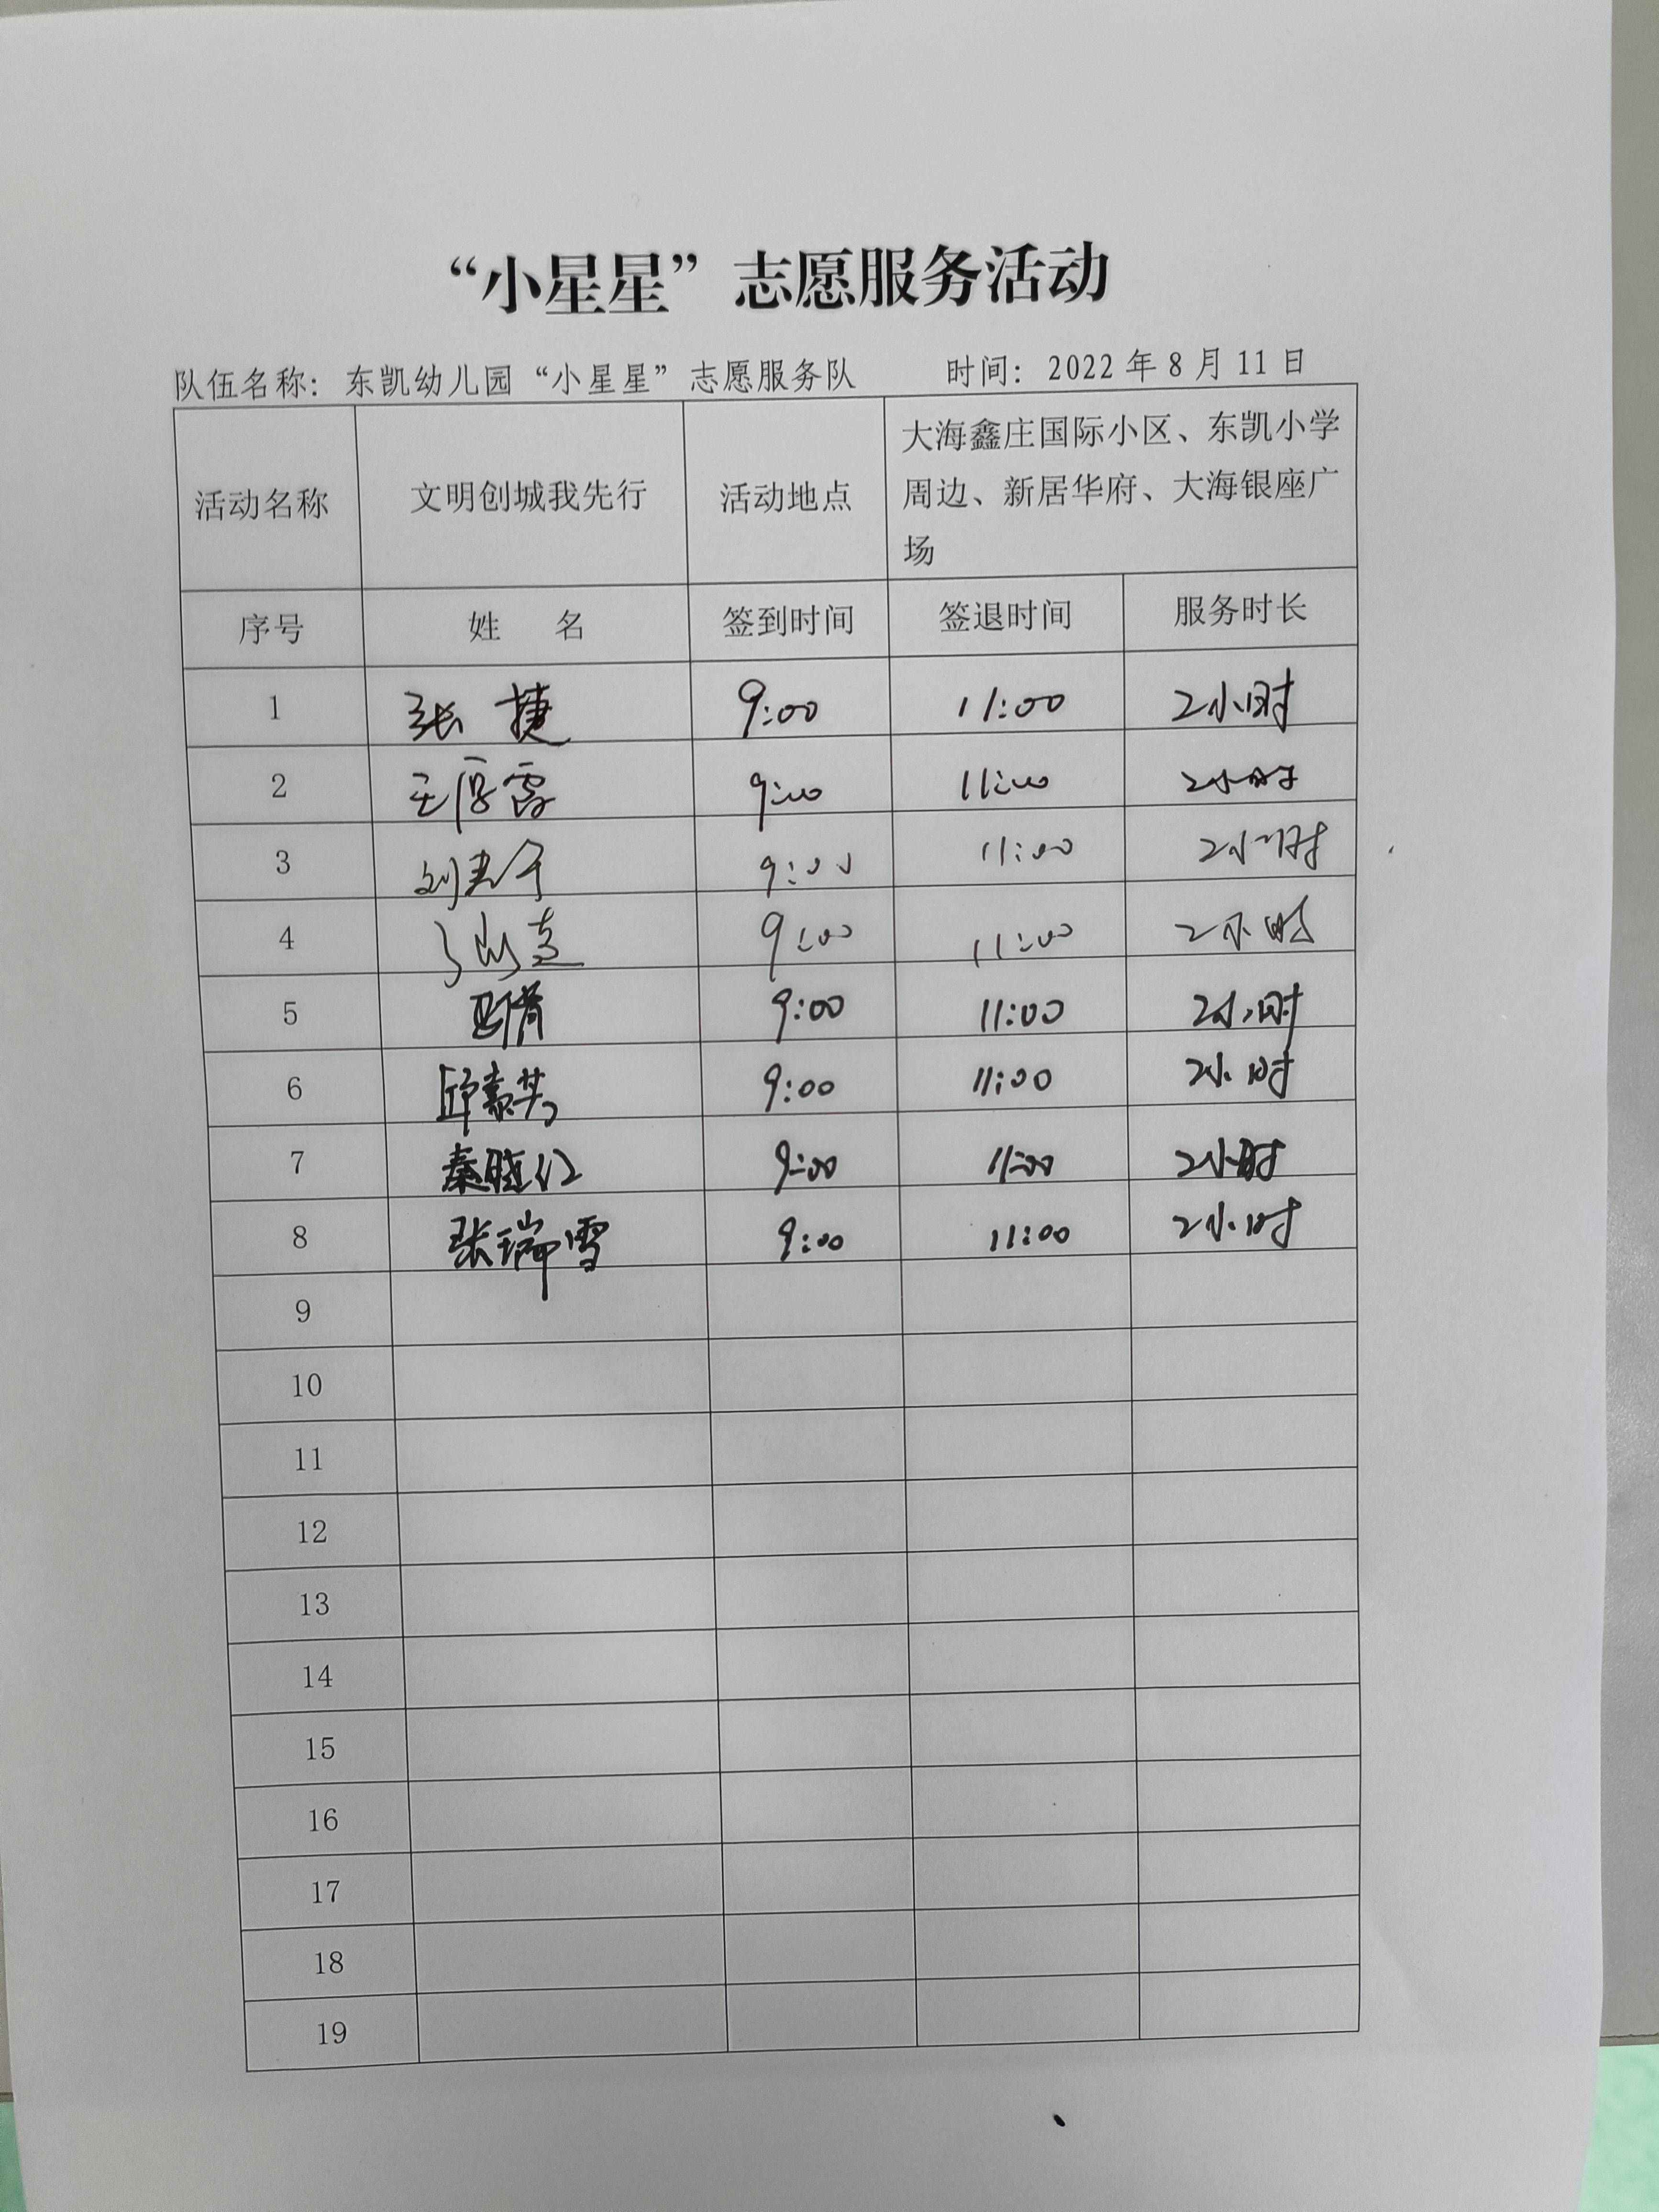 “小星星”志愿服务活动
队伍名称：东凯幼儿园“小星星”志愿服务队 时间：2022年8月11日
活动名称 文明创城我先行 活动地点 大海鑫庄国际小区、东凯小学
周边、新居华府、大海银座广
场
序号 姓 名 签到时间 签退时间 服务时长
1 张捷 9:00 11:00 2小时
2 王厚霞 9:00 11:00 2小时
3 刘 9:00 11:00 2小时
4 9:00 11:00 2小时
5 9:00 11:00 2小时
6 邱素英 9:00 11:00 2小时
7 秦晓红 9:00 11:00 2小时
8 张瑞雪 9:00 11:00 2小时
9
10
11
12
13
14
15
16
17
18
19